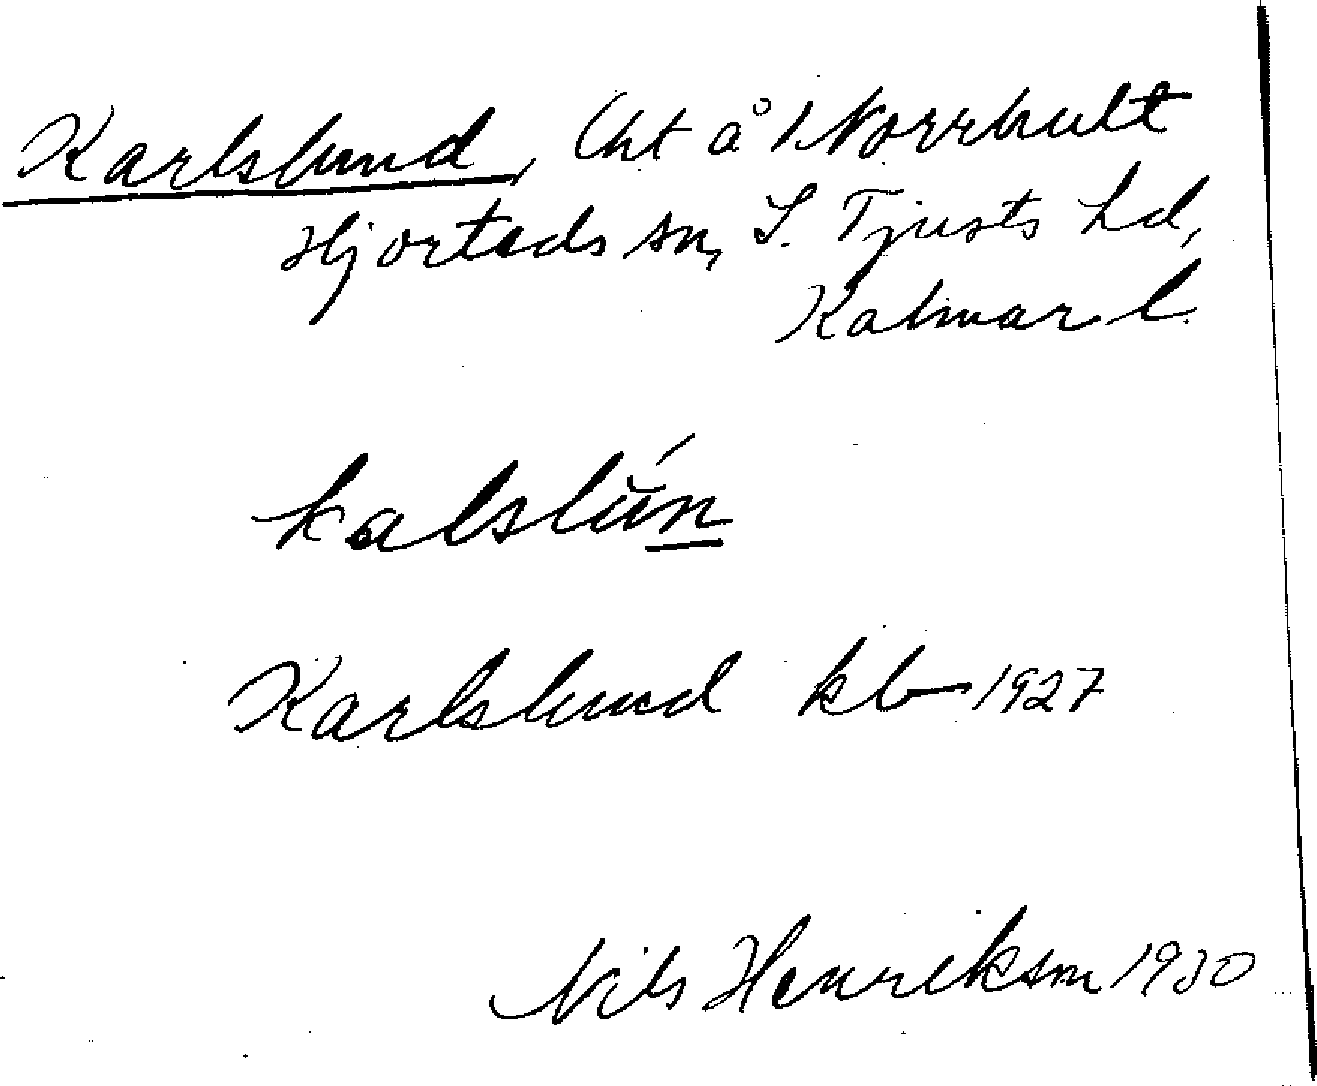 Karlslund, lht å 1 Norrhult
Hjorteds sn, S. Tjusts hd,
Kalmar l.
kalslún
Karlslund kb 1927
Nils Henrikson 1930